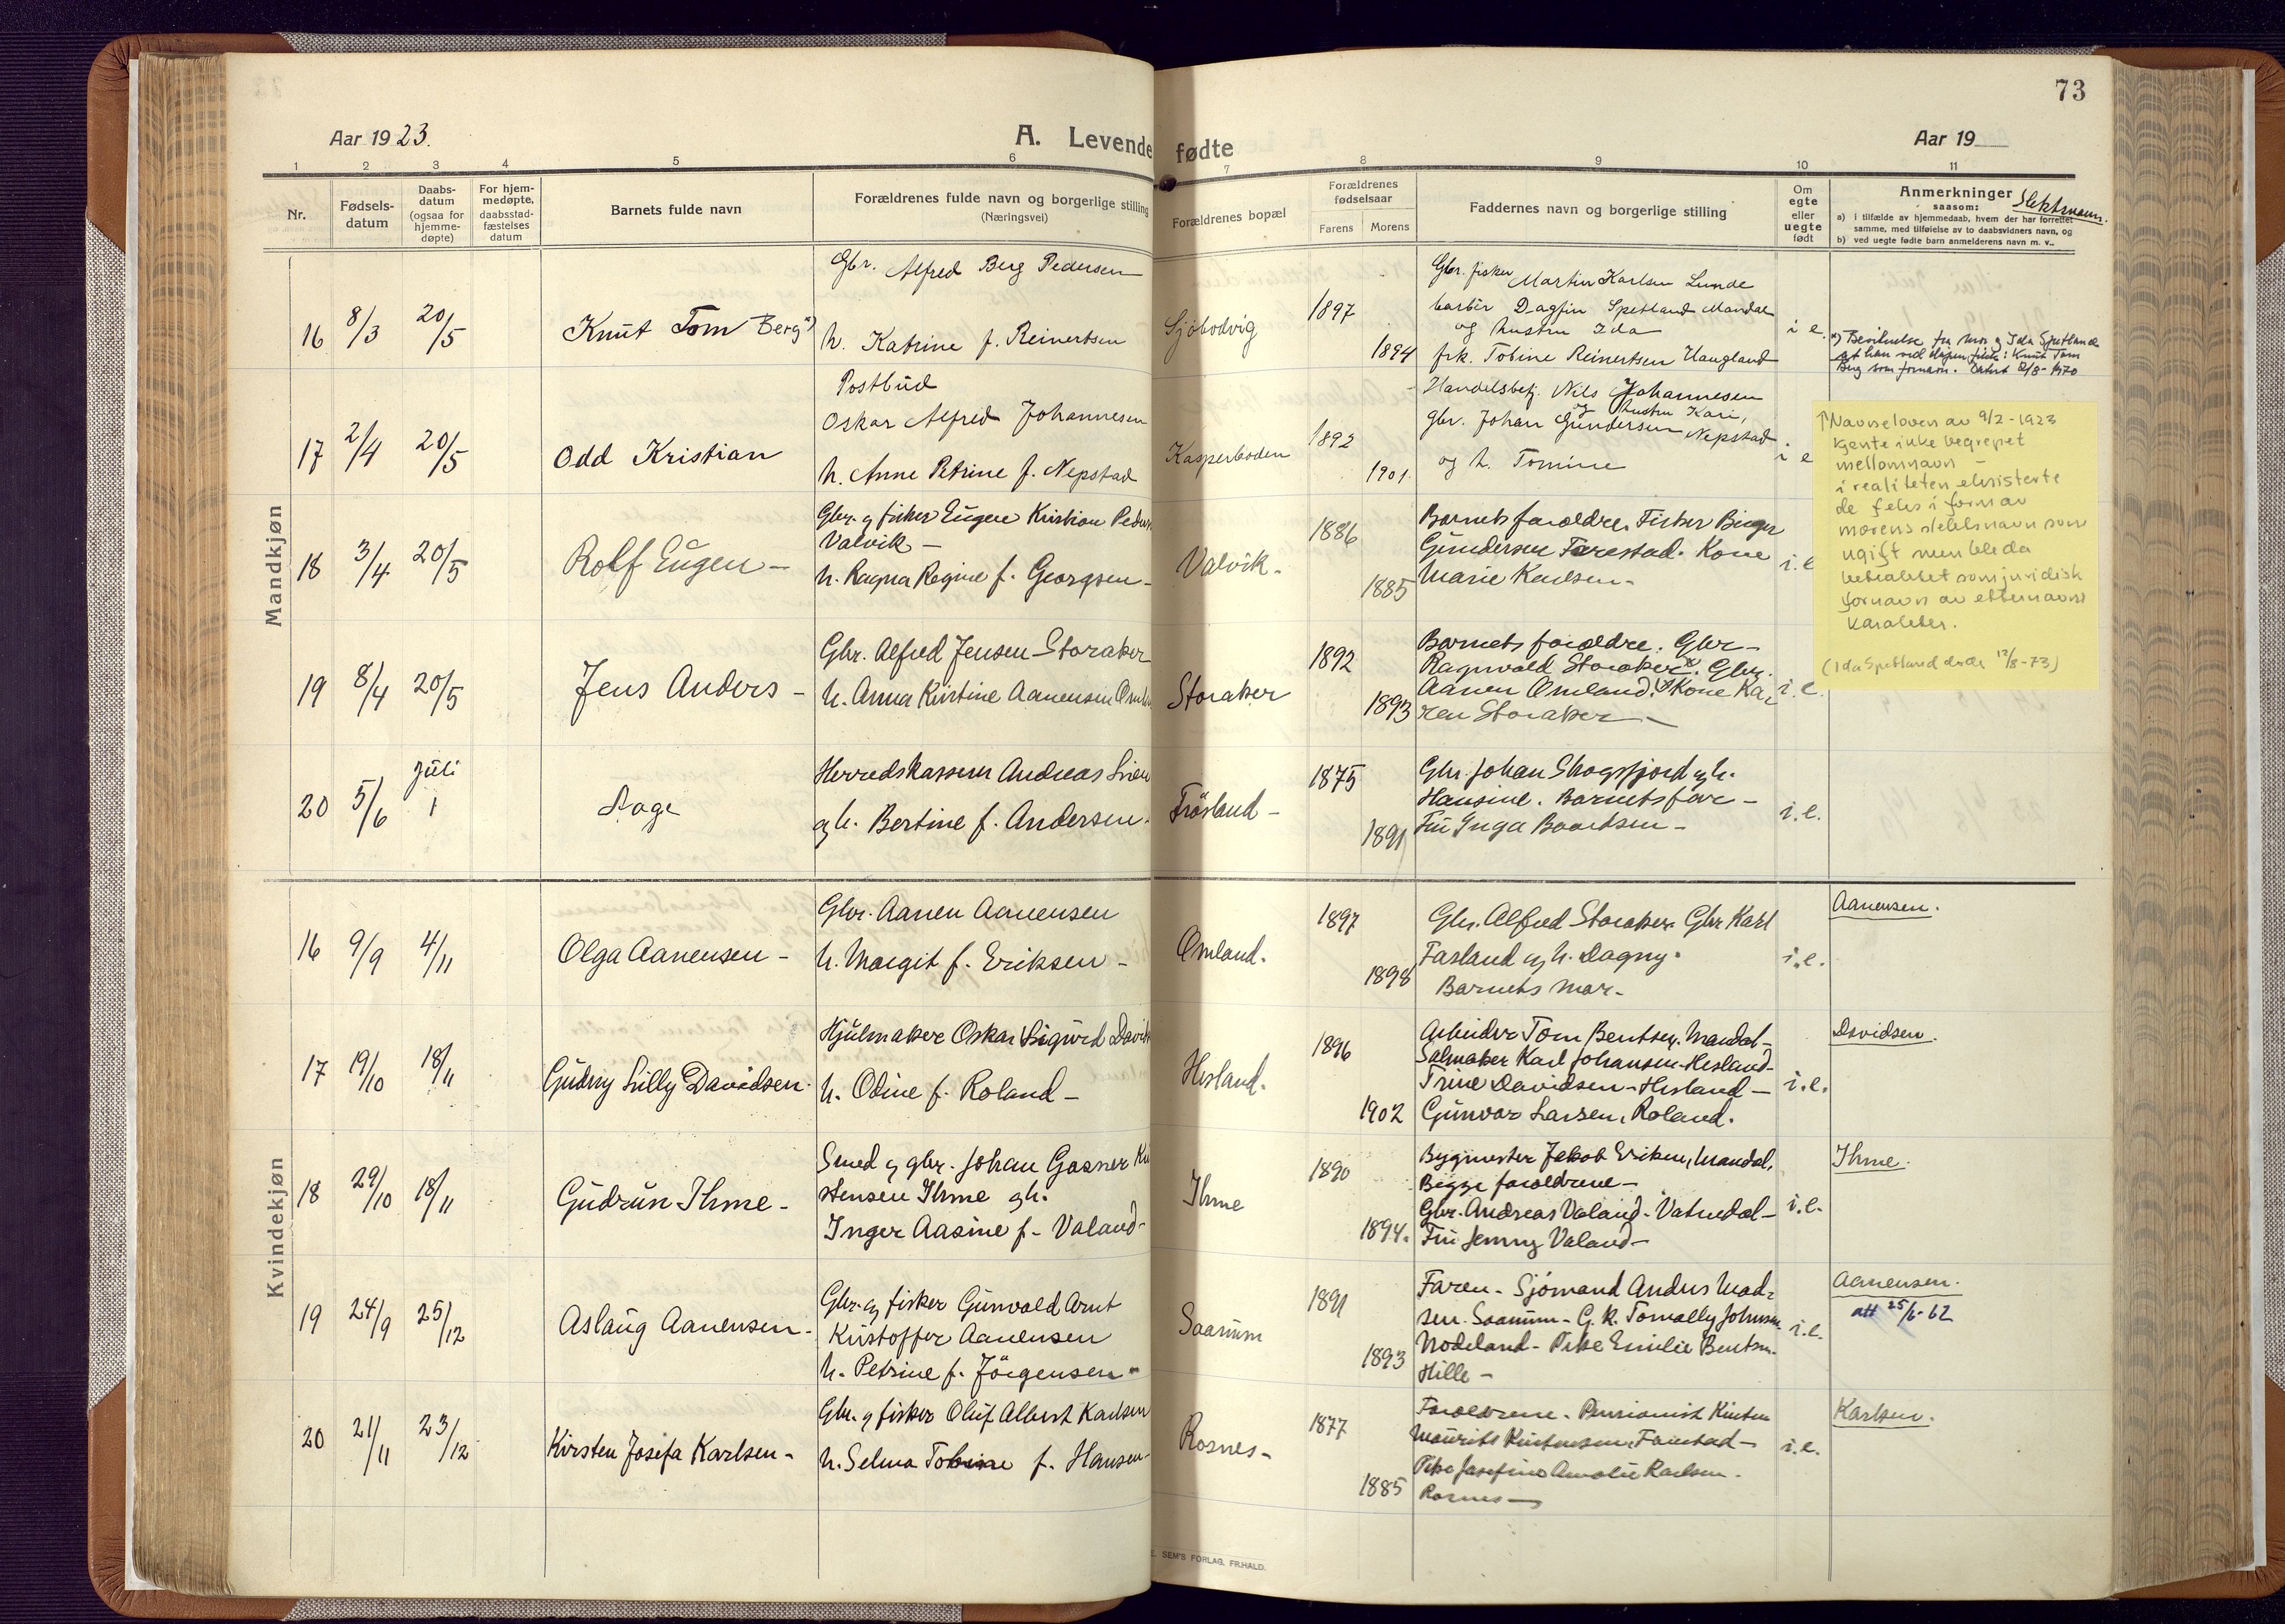 73
Aar 1923.
A. Levende fødte
Aar 19
1 2 3 4 5 6 7 8 9 10 11
Nr.
Fødsels-
datum
Daabs-
datum
(ogsaa for
hjemme-
døpte)
For hjem-
medøpte,
daabsstad-
fæstelses
datum
Barnets fulde navn
Forældrenes fulde navn og borgerlige stilling
(Næringsvei)
Forældrenes bopæl
Forældrenes
fødselsaar
Farens Morens
Faddernes navn og borgerlige stilling
Om
egte
eller
uegte
født
Anmerkninger
saasom:
Slektsnavn.
a) i tilfælde av hjemmedaab, hvem der har forrettet
samme, med tilføielse av to daabsvidners navn, og
b) ved uegte fødte barn anmelderens navn m. v..
Mandkjøn
16 8/3 20/5 Knut Tom Berg x)
Gbr. Alfred Berg Pedersen
h. Katrine f. Reinertsen
Sjöbodvig
1897
1894
Gbr. fisker Martin Karlsen Lunde
barbér Dagfin Spetland Mandal
og hustru Ida
frk. Tobine Reinertsen Haugland
i e
x) Bevitnelse fra Ida Spetland
at han ved dåpen fikk: Knut Tom
Berg som fornavn. 1970
17 2/4 20/5 Odd Kristian
Postbud
Oskar Alfred Johannesen
h. Anne Petrine f. Nepstad
Kasperboden
1892
1901.
Handelsbetj. Nils Johannesen
og hustru Kari,
gbr. Johan Gundersen Nepstad
og h. Tomine
i e
↑ Navneloven av 9/2-1923
kjente ikke begrepet
mellomnavn –
i realiteten eksisterte
de feks i form av
morens slektsnavn som
ugift men ble da
betraktet som juridisk
fornavn av etternavns
karakter.
(Ida Spetland døde 12/8-73)
18 3/4 20/5 Rolf Eugen –
Gbr. og fisker Eugen Kristian
Valvik –
h. Ragna Regine f. Georgsen –
Valvik -
1886
1885
Barnets forældre, Fisker Birger
Gundersen Farestad. Kone
Marie Karlsen –
i.e
19 8/4 20/5 Jens Anders –
Gbr. Alfred Jensen Storaker
h. Anna Kirstine Aanensen
Storaker
1892
1893
Barnets forældre. Gbr –
Ragnvald Storaker. Gbr.
Aanen Omland. Kone Ka-
ren Storaker –
i.e.
20 5/6 Juli 1 Aage
Herredskasserer Andreas
og h. Bertine f. Andersen.
Frösland –
1875
1891
Gbr. Johan Skogsfjord og h.
Hansine. Barnets far –
Frk Inga Baardsen –
i.e.
Kvindekjøn
16 9/9 4/11 Olga Aanensen –
Gbr. Aanen Aanensen
h. Margit f. Eriksen –
Omland.
1897
1898
Gbr. Alfred Storaker. Gbr Karl
Fasland og h. Dagny.
Barnets mor –
i.e.
Aanensen.
17 19/10 18/11 Gudny Lilly Davidsen.
Hjulmaker Oskar Sigurd
h. Odine f. Roland –
Hesland.
1896
1902
Arbeider Tom Bentsen, Mandal –
Salmaker Karl Johansen Hesland –
Trine Davidsen – Hesland –
Gunvor Larsen, Roland.
i.e.
Davidsen.
18 29/10 18/11 Gudrun Ihme –
Smed og gbr. Johan Gasner
stensen Ihme og h.
Inger Aasine f. Valand –
Ihme
1890
1894.
Bygmester Jakob Eriksen, Mandal,
Begge forældrene –
Gbr. Andreas Valand. Vatnedal –
Frk Jenny Valand –
i.e.
Ihme.
19 24/9 25/12 Aslaug Aanensen.
Gbr. og fisker Gunvald Arnt
Kristoffer Aanensen
h. Petrine f. Jörgensen –
Saanum
1891
1893
Faren – Sjömand Anders Mad-
sen. Saanum – G. k. Tomally Johnsen
Nodeland – Pike Emilie Bentsen.
Hille –
i.e.
Aanensen.
att 25/6-62
20 21/11 23/12 Kirsten Josefa Karlsen –
Gbr. og fisker Oluf Albert Karlsen
h. Selma Tobine f. Hansen
Rosnes –
1877
1885
Forældrene – Pensionist
Maurits
Pike Josefine Amalie Karlsen.
Rosnes –
i.e.
Karlsen.
SEM'S FORLAG, FR.HALD.